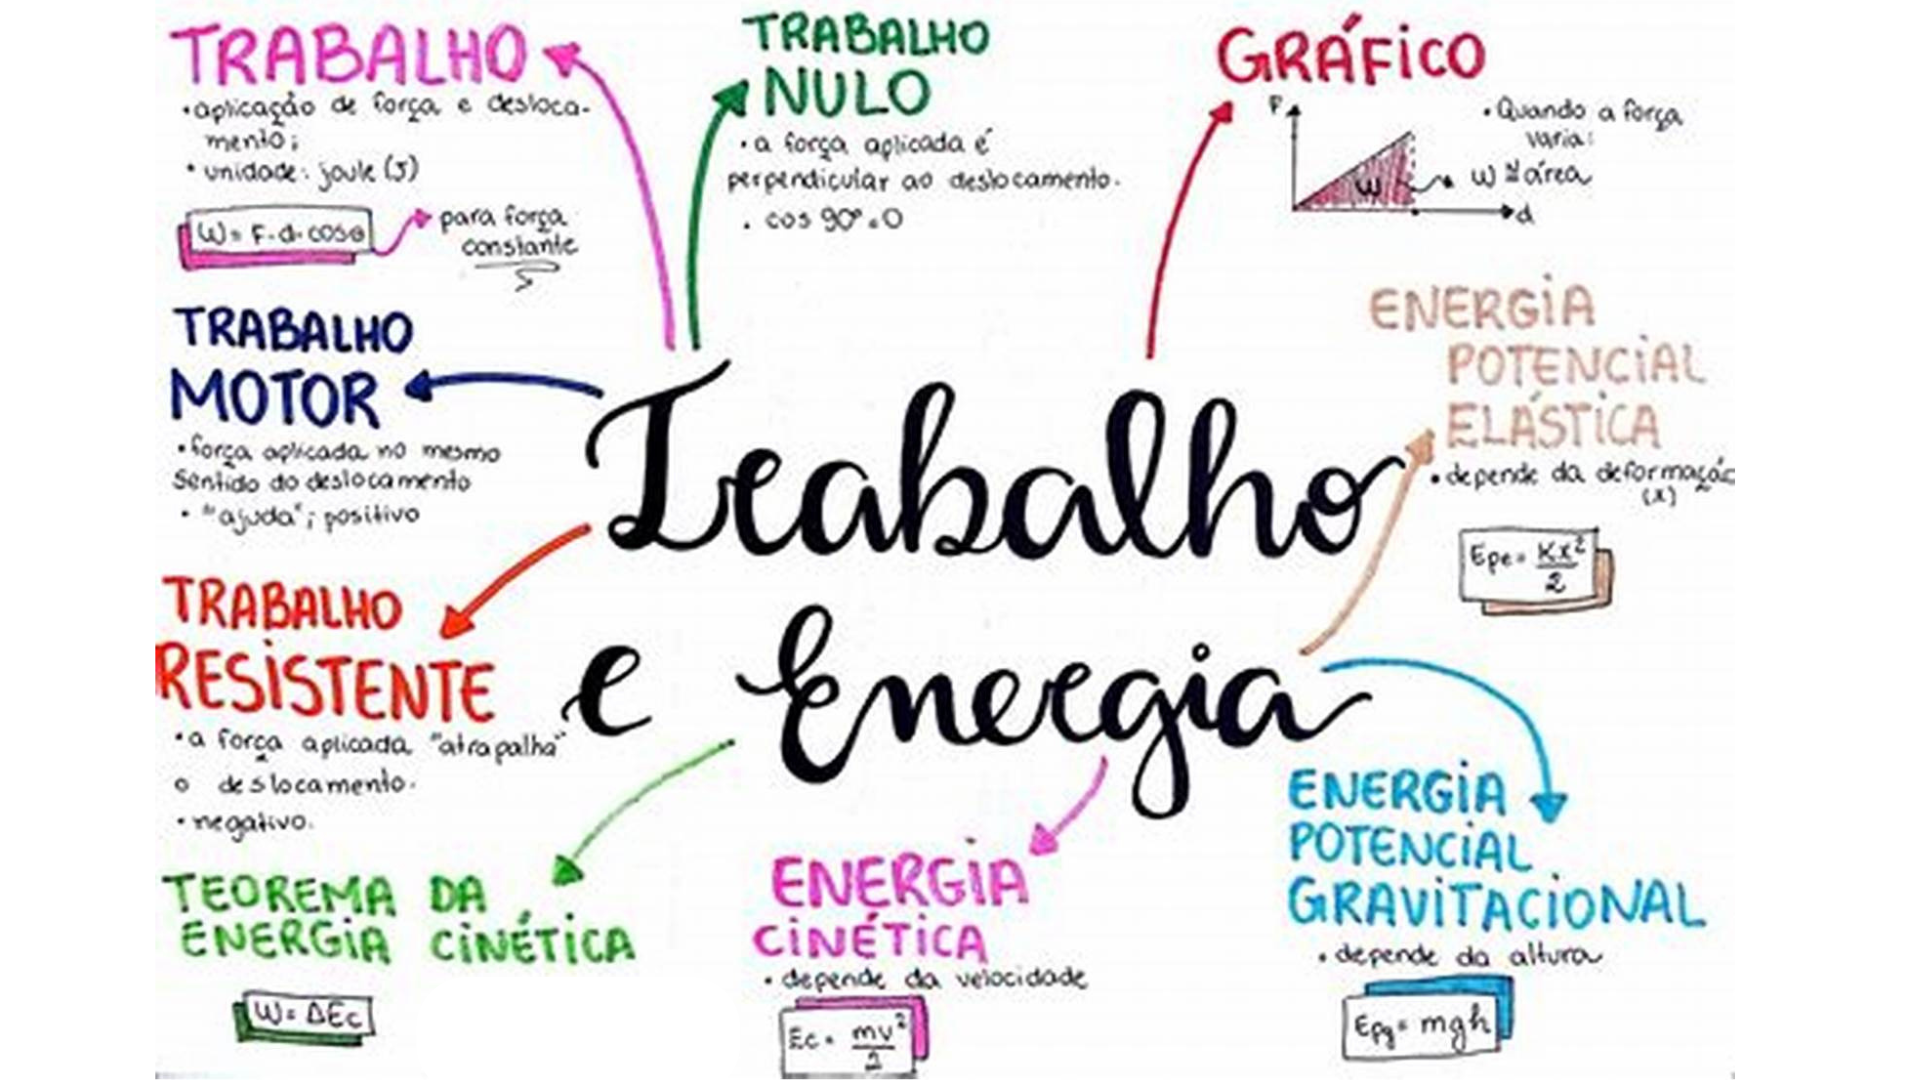 TRABALHO
• aplicação de força e desloca-
mento;
• unidade: joule (J)
W = F·d·cosθ
para força
constante
TRABALHO
NULO
• a força aplicada é
perpendicular ao deslocamento.
• cos 90° = 0
GRÁFICO
F
W
d
• Quando a força
varia:
W ≅ área
TRABALHO
MOTOR
• força aplicada no mesmo
sentido do deslocamento
• "ajuda"; positivo
ENERGIA
POTENCIAL
ELÁSTICA
• depende da deformação
(x)
Epe = Kx²/2
Trabalho
e Energia
TRABALHO
RESISTENTE
• a força aplicada "atrapalha"
o deslocamento.
• negativo.
TEOREMA DA
ENERGIA CINÉTICA
W = ΔEc
ENERGIA
CINÉTICA
• depende da velocidade
Ec = mv²/2
ENERGIA
POTENCIAL
GRAVITACIONAL
• depende da altura
Epg = mgh